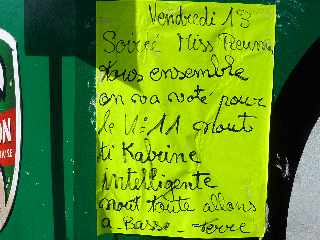 Vendredi 13
Soirée Miss Réunion
tous ensemble
on va voté pour
le N: 11 nout
ti Kabrine
intelligente
nout toute allons
a - Basse - Terre
ON